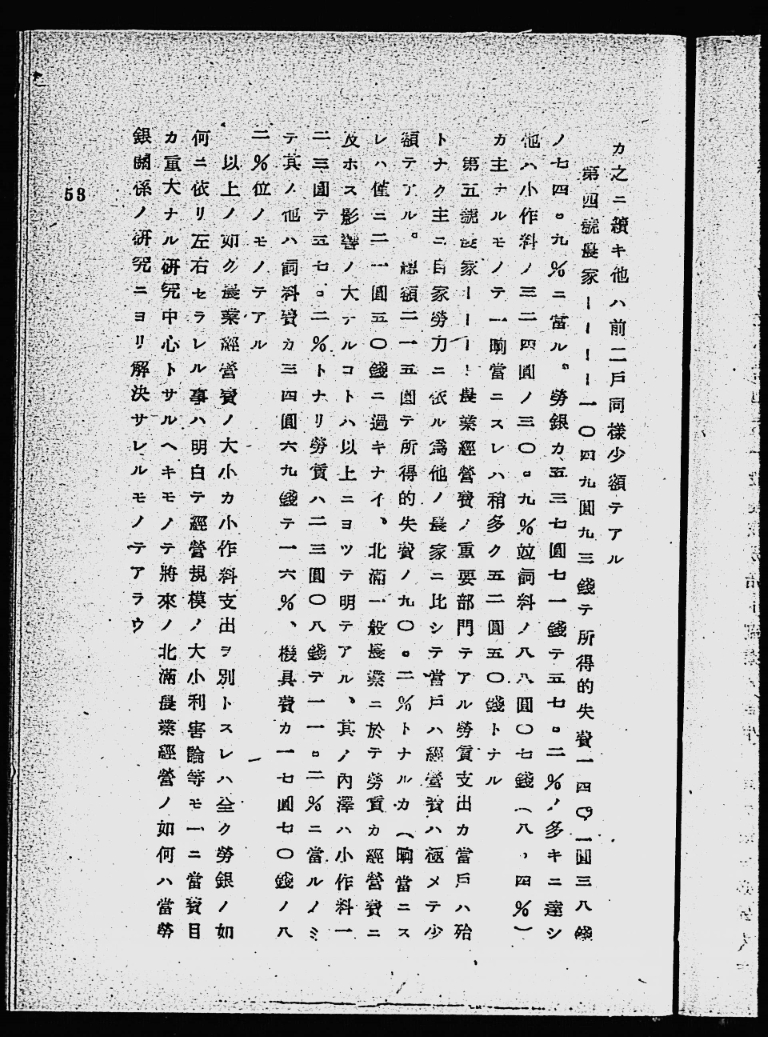 カ之ニ續キ他ハ前二戶同樣少額テアル
第四號農家ーーーー一〇四九圓九三錢テ所得的失費一四〇一圓三八錢
ノ七四。九%ニ當ル。勞銀カ五三七圓七一錢テ五七。二%ノ多キニ達シ
他ハ小作料ノ三二四圓ノ三〇。九%竝飼料ノ八八圓〇七錢(八、四%)
カ主ナルモノテ一晌當ニスレハ稍多ク五二圓五〇錢トナル
第五號農家ーーーー農業經營費ノ重要部門テアル勞賃支出カ當戶ハ殆
トナク主ニ自家勞力ニ依ル爲他ノ農家ニ比シテ當戶ハ經營費ハ極メテ少
額テアル。總額二一五圓テ所得的失費ノ九〇。二%トナルカ(晌當ニス
レハ僅ニ二一圓五〇錢ニ過キナイ、北滿一般農業ニ於テ勞賃カ經營費ニ
及ホス影響ノ大ナルコトハ以上ニヨツテ明テアル、其ノ內澤ハ小作料一
二三圓テ五七。二%トナリ勞賃ハ二三圓〇八錢テ一一。二%ニ當ルノミ
テ其ノ他ハ飼料費カ三四圓六九錢テ一六%、機具費カ一七圓七〇錢ノ八
二%位ノモノテアル
以上ノ如ク農業經營費ノ大小カ小作料支出ヲ別トスレハ全ク勞銀ノ如
何ニ依リ左右セラレル事ハ明白テ經營規模ノ大小利害論等モ一ニ當費目
カ重大ナル研究中心トサルヘキモノテ將來ノ北滿農業經營ノ如何ハ當勞
銀關係ノ研究ニヨリ解決サレルモノテアラウ
53